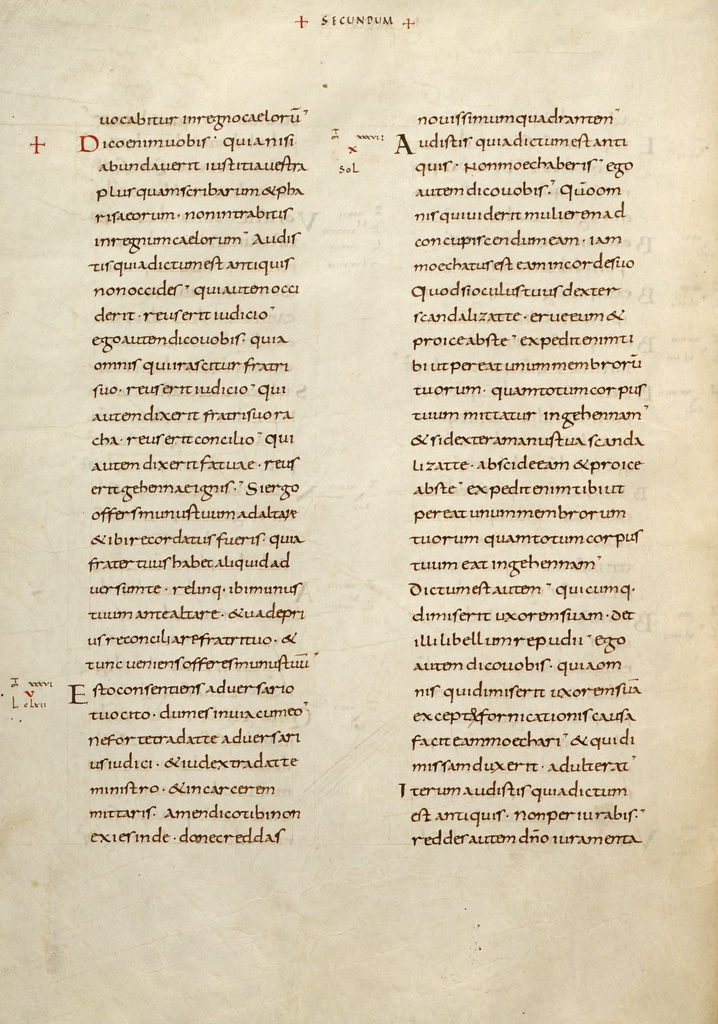 + SECUNDUM +
uocabitur in regno caelorū
+ Dico enim uobis · quia nisi
abundauerit iustitia uestra
plus quam scribarum & pha
risaeorum · non intrabitis
in regnum caelorum Audis
tis quia dictum est antiquis
non occides quiautem occi
derit · reus erit iudicio
ego autem dico uobis · quia
omnis qui irascitur fratri
suo · reus erit iudicio qui
autem dixerit fratri suo ra
cha · reus erit concilio qui
autem dixerit fatuae · reus
erit gehennae ignis · Si ergo
offers munus tuum ad altare
& ibi recordatus fueris · quia
frater tuus habet aliquid ad
uersum te · relinq· ibi munus
tuum ante altare · & uade pri
us reconciliare fratri tuo · &
tunc ueniens offeres munus tuū
Esto consentiens aduersario
tuo cito · dum es in uia cum eo
ne forte tradat te aduersari
us iudici · & iudex tradat te
ministro · & in carcerem
mittaris · Amen dico tibi non
exies inde · donec reddas
nouissimum quadrantem
x
SoL
Audistis quia dictum est anti
quis · Non moechaberis ego
autem dico uobis · Qūo om
nis qui uiderit mulierem ad
concupiscendum eam · iam
moechatus est eam in corde suo
Quod si oculus tuus dexter
scandalizat te · erue eum &
proice abs te expedit enim ti
bi ut pereat unum membrorū
tuorum · quam totum corpus
tuum mittatur in gehennam
& si dextera manus tua scanda
lizat te · abscide eam & proice
abs te expedit enim tibi ut
pereat unum membrorum
tuorum quam totum corpus
tuum eat in gehennam
Dictum est autem quicumq·
dimiserit uxorem suam · det
illi libellum repudii ego
autem dico uobis · quia om
nis qui dimiserit uxorem suā
excepta fornicationis causa
facit eam moechari & qui di
missam duxerit · adulterat
Iterum audistis quia dictum
est antiquis · non periurabis ·
reddes autem dn̄o iuramenta